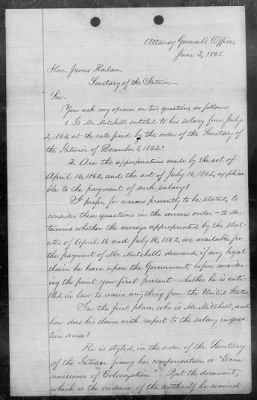 Attorney General's Office,
June 3, 1865.
Hon. James Harlan,
Secretary of the Interior.
Sir:
You ask my opinion on two questions as follows:
1. Is Mr. Mitchell entitled to his salary from July
2, 1864, at the rate fixed by the order of the Secretary of
the Interior of December 1, 1862?
2. Are the appropriations made by the act of
April 16, 1862, and the act of July 16, 1862, applica-
ble to the payment of such salary?
I prefer, for reasons presently to be stated, to
consider these questions in the inverse order - to de-
termine whether the moneys appropriated by the stat-
utes of April 16 and July 16, 1862, are available for
the payment of Mr. Mitchell's demand, if any legal
claim he have upon the Government, before consider-
ing the point you first present - whether he is enti-
tled in law to receive anything from the United States.
In the first place, who is Mr. Mitchell, and
how does his claim with respect to the salary in ques-
tion arise?
He is styled, in the order of the Secretary
of the Interior fixing his compensation, a "Com-
missioner of Colonization." But the document,
which is the evidence of the authority he